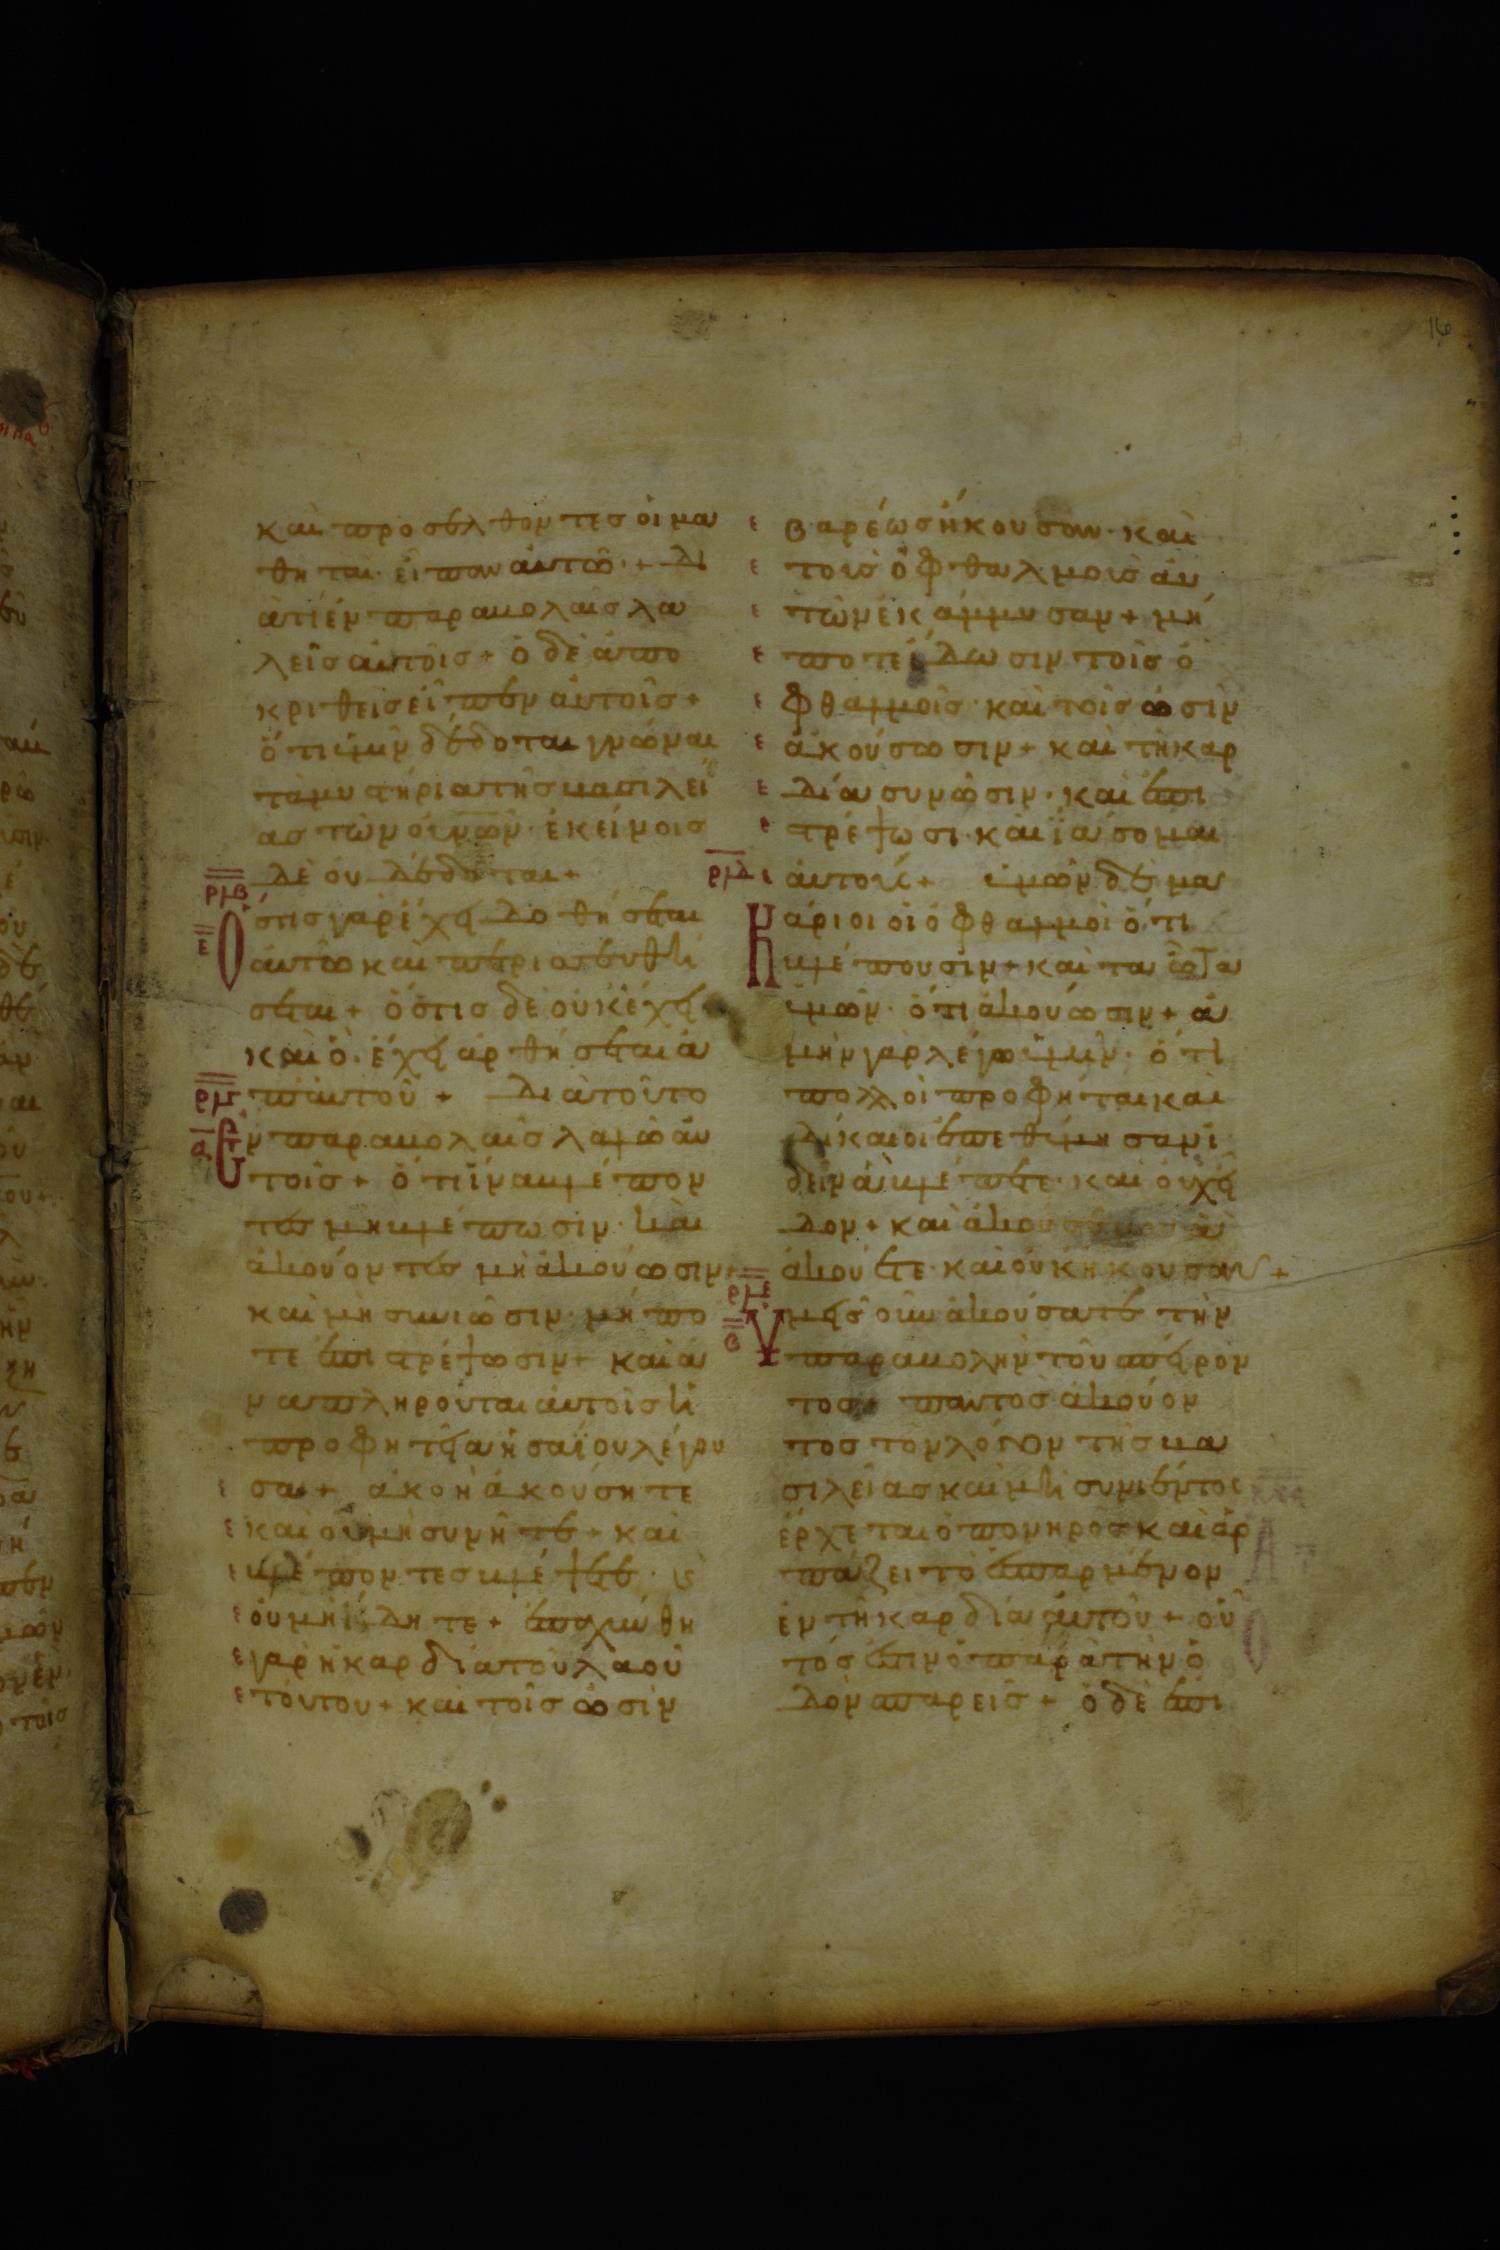 16
καὶ προσελθόντες οἱ μα
θηταὶ εἶπον αὐτῶ· + δι
ατί ἐν παραβολαῖς λα
λεῖς αὐτοῖς + ὁ δὲ ἀπο
κριθεὶς εἶπεν αὐτοῖς +
ὅτι ὑμῖν δέδοται γνῶναι
τὰ μυστήρια τῆς βασιλεί
ας τῶν οὐ̅ν̅ω̅ν̅· ἐκείνοις
δὲ οὐ δέδοται +
ρμβ
ε
Ὅστις γὰρ ἔχει δοθήσεται
αὐτῶ καὶ περισσευθή
σεται + ὅστις δὲ οὐκ ἔχει
καὶ ὃ ἔχει ἀρθήσεται ἀ
ρμγ
π αὐτοῦ + διατοῦτο
α
Ἐν παραβολαῖς λαλῶ αὐ
τοῖς + ὅτι ἵνα βλέπον
τες μὴ βλέπωσιν· καὶ
ἀκούοντες μὴ ἀκούωσιν +
καὶ μὴ συνιῶσιν· μήπο
τε ἐπιστρέψωσιν + καὶ ἀ
ναπληροῦται αὐτοῖς ἡ
προφητεία ἡσαΐου λέγου
σα + ἀκοὴ ἀκούσητε
καὶ οὐ μὴ συνῆτε + καὶ
βλέποντες βλέψετε· καὶ
οὐ μὴ ἴδητε + ἐπαχύνθη
γὰρ ἡ καρδία τοῦ λαοῦ
τούτου + καὶ τοῖς ὠσὶν
βαρέως ἤκουσαν· καὶ
τοὺς ὀφθαλμοὺς αὐ
τῶν ἐκάμμυσαν + μή
ποτε ἴδωσιν τοῖς ὀ
φθαλμοῖς· καὶ τοῖς ὠσὶν
ἀκούσωσιν + καὶ τῆ καρ
δία συνῶσιν· καὶ ἐπι
τρέψωσι· καὶ ϊάσομαι
ρμδ
αὐτούς + ὑμῶν δὲ μα
Κάριοι οἱ ὀφθαλμοὶ ὅτι
βλέπουσιν + καὶ τὰ ὦτα
ὑμῶν· ὅτι ἀκούωσιν + ἀ
μὴν γὰρ λέγω ὑμῖν· ὅτι
πολλοὶ προφῆται καὶ
δίκαιοι ἐπεθύμησαν ἰ
δεῖν ἃ βλέπετε· καὶ οὐχ εἶ
δον + καὶ ἀκοῦσαι ἃ
ἀκούετε· καὶ οὐκ ἤκουσαν +
ρμε
β
Ὑμεῖς οὖν ἀκούσατε τὴν
παραβολὴν τοῦ σπείρον
τος παντὸς ἀκούον
τος τὸν λόγον τῆς βα
σιλείας καὶ μὴ συνιέντος
ἔρχεται ὁ πονηρὸς καὶ ἁρ
πάζει τὸ ἐσπαρμένον
ἐν τῆ καρδία αὐτοῦ + οὗ
τός ἐστιν ὁ παρὰ τὴν ὁ
δὸν σπαρείς + ὁ δὲ ἐπι